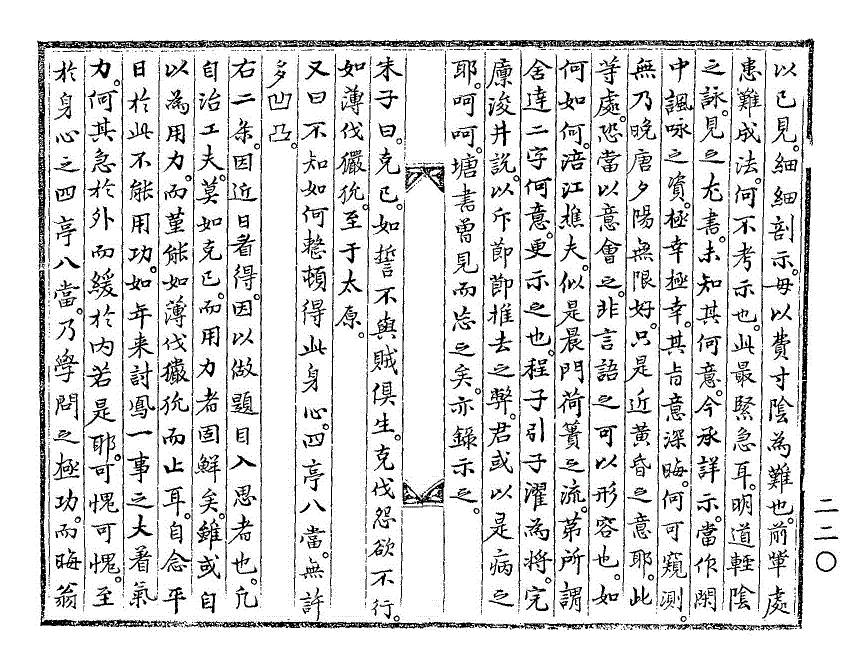 以已見。細細剖示。毋以費寸陰為難也。前輩處
患難成法。何不考示也。此最緊急耳。明道輕陰
之詠。見之尤書。未知其何意。今承詳示。當作閑
中諷咏之資。極幸極幸。其旨意深晦。何可窺測。
無乃晚唐夕陽無限好。只是近黃昏之意耶。此
等處。恐當以意會之。非言語之可以形容也。如
何如何。涪江樵夫。似是晨門荷蕢之流。第所謂
舍達二字何意。更示之也。程子引子濯為將。完
廩浚井說。以斥節節推去之弊。君或以是病之
耶。呵呵。塘書曾見而忘之矣。亦錄示之。
朱子曰。克己。如誓不與賊俱生。克伐怨欲不行。
如薄伐玁狁。至于太原。
又曰不知如何整頓得此身心。四亭八當。無許
多凹凸。
右二条。因近日看得。因以做題目入思者也。凡
自治工夫。莫如克己。而用力者固鮮矣。雖或自
以為用力。而堇能如薄伐玁狁而止耳。自念平
日於此不能用功。如年來討鳳一事之大著氣
力。何其急於外而緩於內若是耶。可愧可愧。至
於身心之四亭八當。乃學問之極功。而晦翁
二二〇